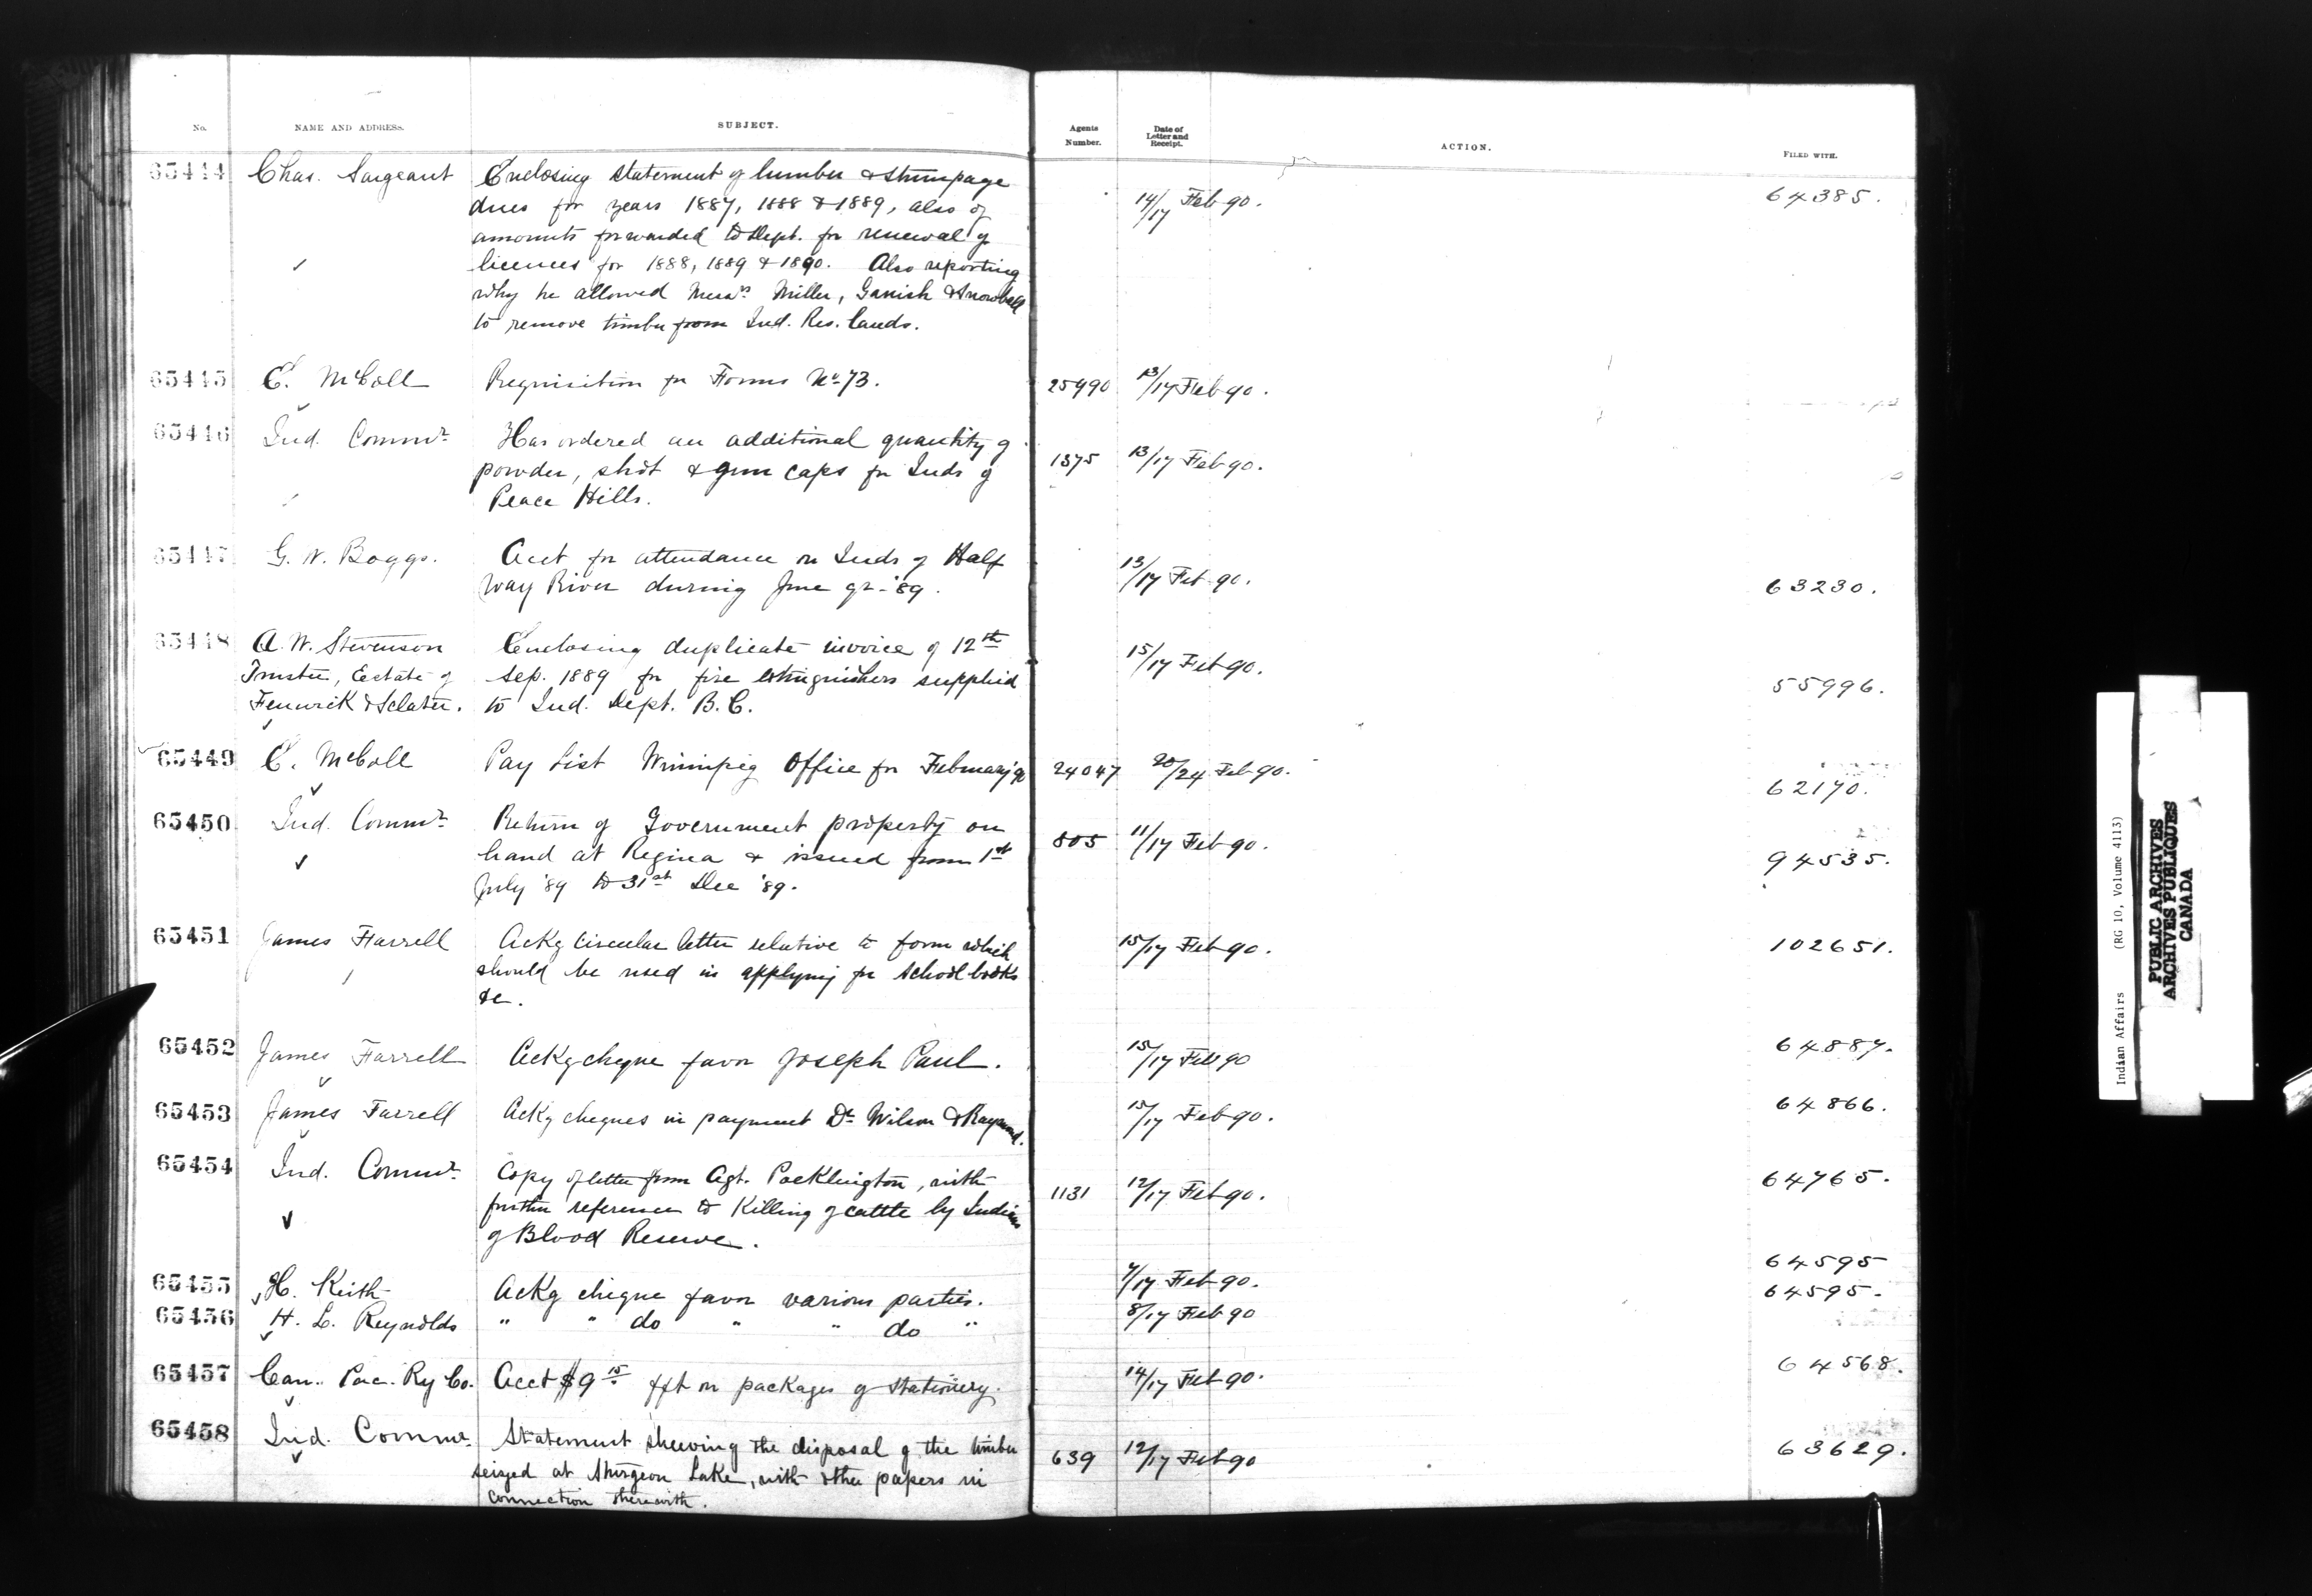 No.
NAME AND ADDRESS.
SUBJECT.
Agents Number.
Date of Letter and Receipt.
ACTION.
FILED WITH.
65414 Chas. Sargeant Enclosing statement of lumber & stumpage 14/17 Feb 90. 64385.
dues for years 1887, 1888 & 1889, also of
amounts forwarded to Dept. for renewal of
licences for 1888, 1889 & 1890. Also reporting
why he allowed Messrs Miller, & Snowball
to remove timber from Ind. Res. lands.
65445 E. McColl Requisition for Forms No. 73. 25990 13/17 Feb 90.
65446 Ind. Commr. Has ordered an additional quantity of 1375 13/17 Feb 90.
powder, shot & gun caps for Inds of
Peace Hills.
65447 G. W. Boggs. Acct for attendance on Inds of Half 13/17 Feb 90. 63230.
way River during June qr. '89.
65448 A. W. Stevenson Enclosing duplicate invoice of 12th 15/17 Feb 90. 55996.
Trustee, Estate of Sep. 1889 for fire extinguishers supplied
Fenwick & Sclater. to Ind. Dept. B.C.
65449 E. McColl Pay List Winnipeg Office for February 90 24047 20/24 Feb 90. 62170.
65450 Ind. Commr. Return of Government property on 805 11/17 Feb 90. 94535.
hand at Regina & issued from 1st
July '89 to 31st Dec '89.
65451 James Farrell Ackg circular letter relative to form which 15/17 Feb 90. 102651.
should be used in applying for school books
&c.
65452 James Farrell Ackg cheque favor Joseph Paul. 15/17 Feb 90 64887.
65453 James Farrell Ackg cheques in payment Drs Wilson & Raymond. 15/17 Feb 90. 64866.
65454 Ind. Commr. Copy of letter from Agt. Pocklington, with 1131 12/17 Feb 90. 64765.
further reference to Killing of cattle by Indians
of Blood Reserve.
65455 H. Keith Ackg cheque favor various parties. 7/17 Feb 90. 64595
65456 H. L. Reynolds " " do " " do " 8/17 Feb 90 64595.
65457 Can. Pac. Ry Co. Acct $9.15 fft on packages of stationery. 14/17 Feb 90. 64568.
65458 Ind. Commr. Statement shewing the disposal of the timber 639 12/17 Feb 90 63629.
seized at Sturgeon Lake, with other papers in
connection therewith.
Indian Affairs (RG 10, Volume 4113)
PUBLIC ARCHIVES
ARCHIVES PUBLIQUES
CANADA